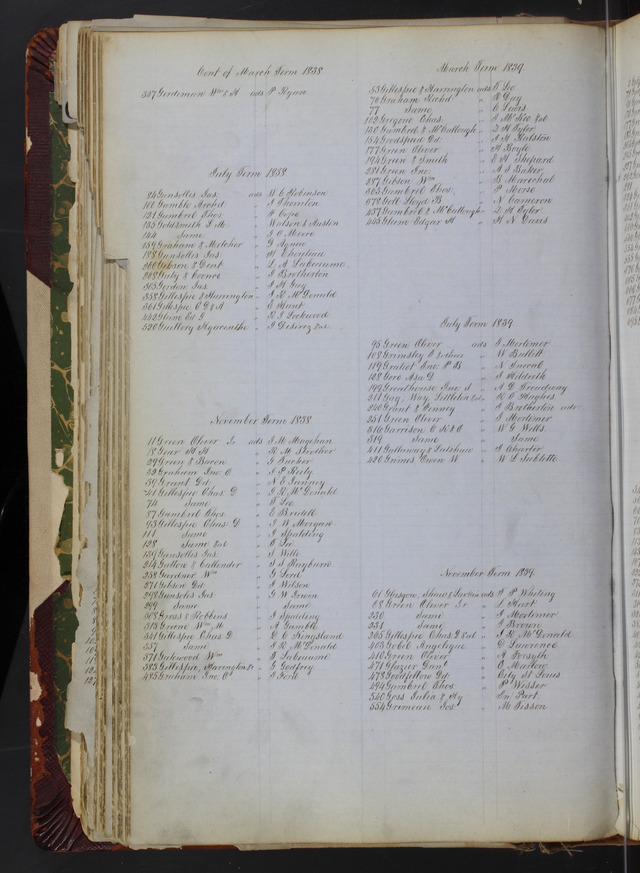 Cont of March Term 1838
387 Gerdeman Wm & H ads P Ryan
July Term 1838
24 Gonsollis Jas. ads W C Robinson
101 Gamble Archd " J Thornton
131 Gumbrel Thos " F Cope
135 Goldsmith J M " Watson & Austin
144 Same " J C Moore
159 Graham & Melcher " D Agnue
188 Gunsollis Jas " H Chouteau
266 Gibson & Dent " L A Labeaume
268 Guly & Coonce " J Brotherton
303 Gordon Jas " J H Gay
358 Gillespie & Harrington " J R McDonald
361 Gillespie C D & A " E Hunt
442 Glime Ed G " R J Lockwood
520 Guillory Hyacinthe " J Desirez &al
November Term 1838
11 Green Oliver Jr ads S M Mingchan
18 Gear H H " R M Strother
29 Green & Bacon " G Tucker
32 Graham Jno. C " J P Reily
39 Grant Gd. " N E Janney
41 Gillespie Chas D " J R McDonald
74 Same " F Lee
87 Gumbrel Thos " E Bredell
93 Gillespie Chas D " J W Morgan
111 Same " J Spalding
128 Same &al " F Lee
139 Gunsollis Jas. " S Wille
214 Gallon & Callender " J S Rayburn
258 Gardner Wm " G Lord
271 Gibson Gd. " J Wilson
298 Gunsolis Jas " G W Green
299 Same " Same
308 Grass & Robbins " J Spalding
318 Greene Wm M " A Gamble
341 Gillespie Chas D " R C Ringsland
357 Same " J R McDonald
371 Gatewood Wm " T Labeaume
385 Gillespie, Harrington & " G Godfrey
485 Graham Jno. C " J Ford
March Term 1839.
53 Gillespie & Harrington ads F Lee
70 Graham Richd " R Guy
77 Same " C Lewis
102 Gregoire Chas. " A McKee &al
150 Gumbrel & McCullough " Z H Tyler
154 Goodspeed Gd. " J H Ralston
177 Green Oliver " H Boyle
194 Green & Smith " E H Shepard
281 Green Jno. " A S Baker
287 Gibson Wm " B Marechal
365 Gumbrel Thos. " P Morse
378 Gott Lloyd B " N Cameron
437 Gumbrel & McCullough " Z H Tyler
445 Glenn Edgar H " H N Davis
July Term 1839
95 Green Oliver ads S Mortimer
108 Grimsley T & other " W Bullitt
119 Gratiot Jno. P B " N Duval
168 Gere Asa D " S Hildreth
199 Greathouse Jno. S " A D Treadway
211 Gay, Way, Littleton &al. " R C Hughes
240 Grant & Penney " J Brotherton adr
251 Green Oliver " S Mortimer
316 Garrison O K & O " W G Wells
319 Same " Same
411 Gallaway & Tutshaw " S Charter
420 Grimes Owen W " W L Sublette
November Term 1839.
61 Glasgow, Shaw & Larkin ads S P Whiting
68 Green Oliver Jr " L Hart
230 Same " S Mortimer
231 Same " J Brown
365 Gillespie Chas D &al " J R McDonald
405 Gobet Angelique " D Lawrence
410 Green Oliver " J Forsyth
471 Glazier Danl " E Marlow
478 Goodfellow Gd. " City St Louis
494 Gumbrel Thos " P Wesser
540 Goss Julia & Hy " Ex Part.
554 Grimean Jos " M Tisson